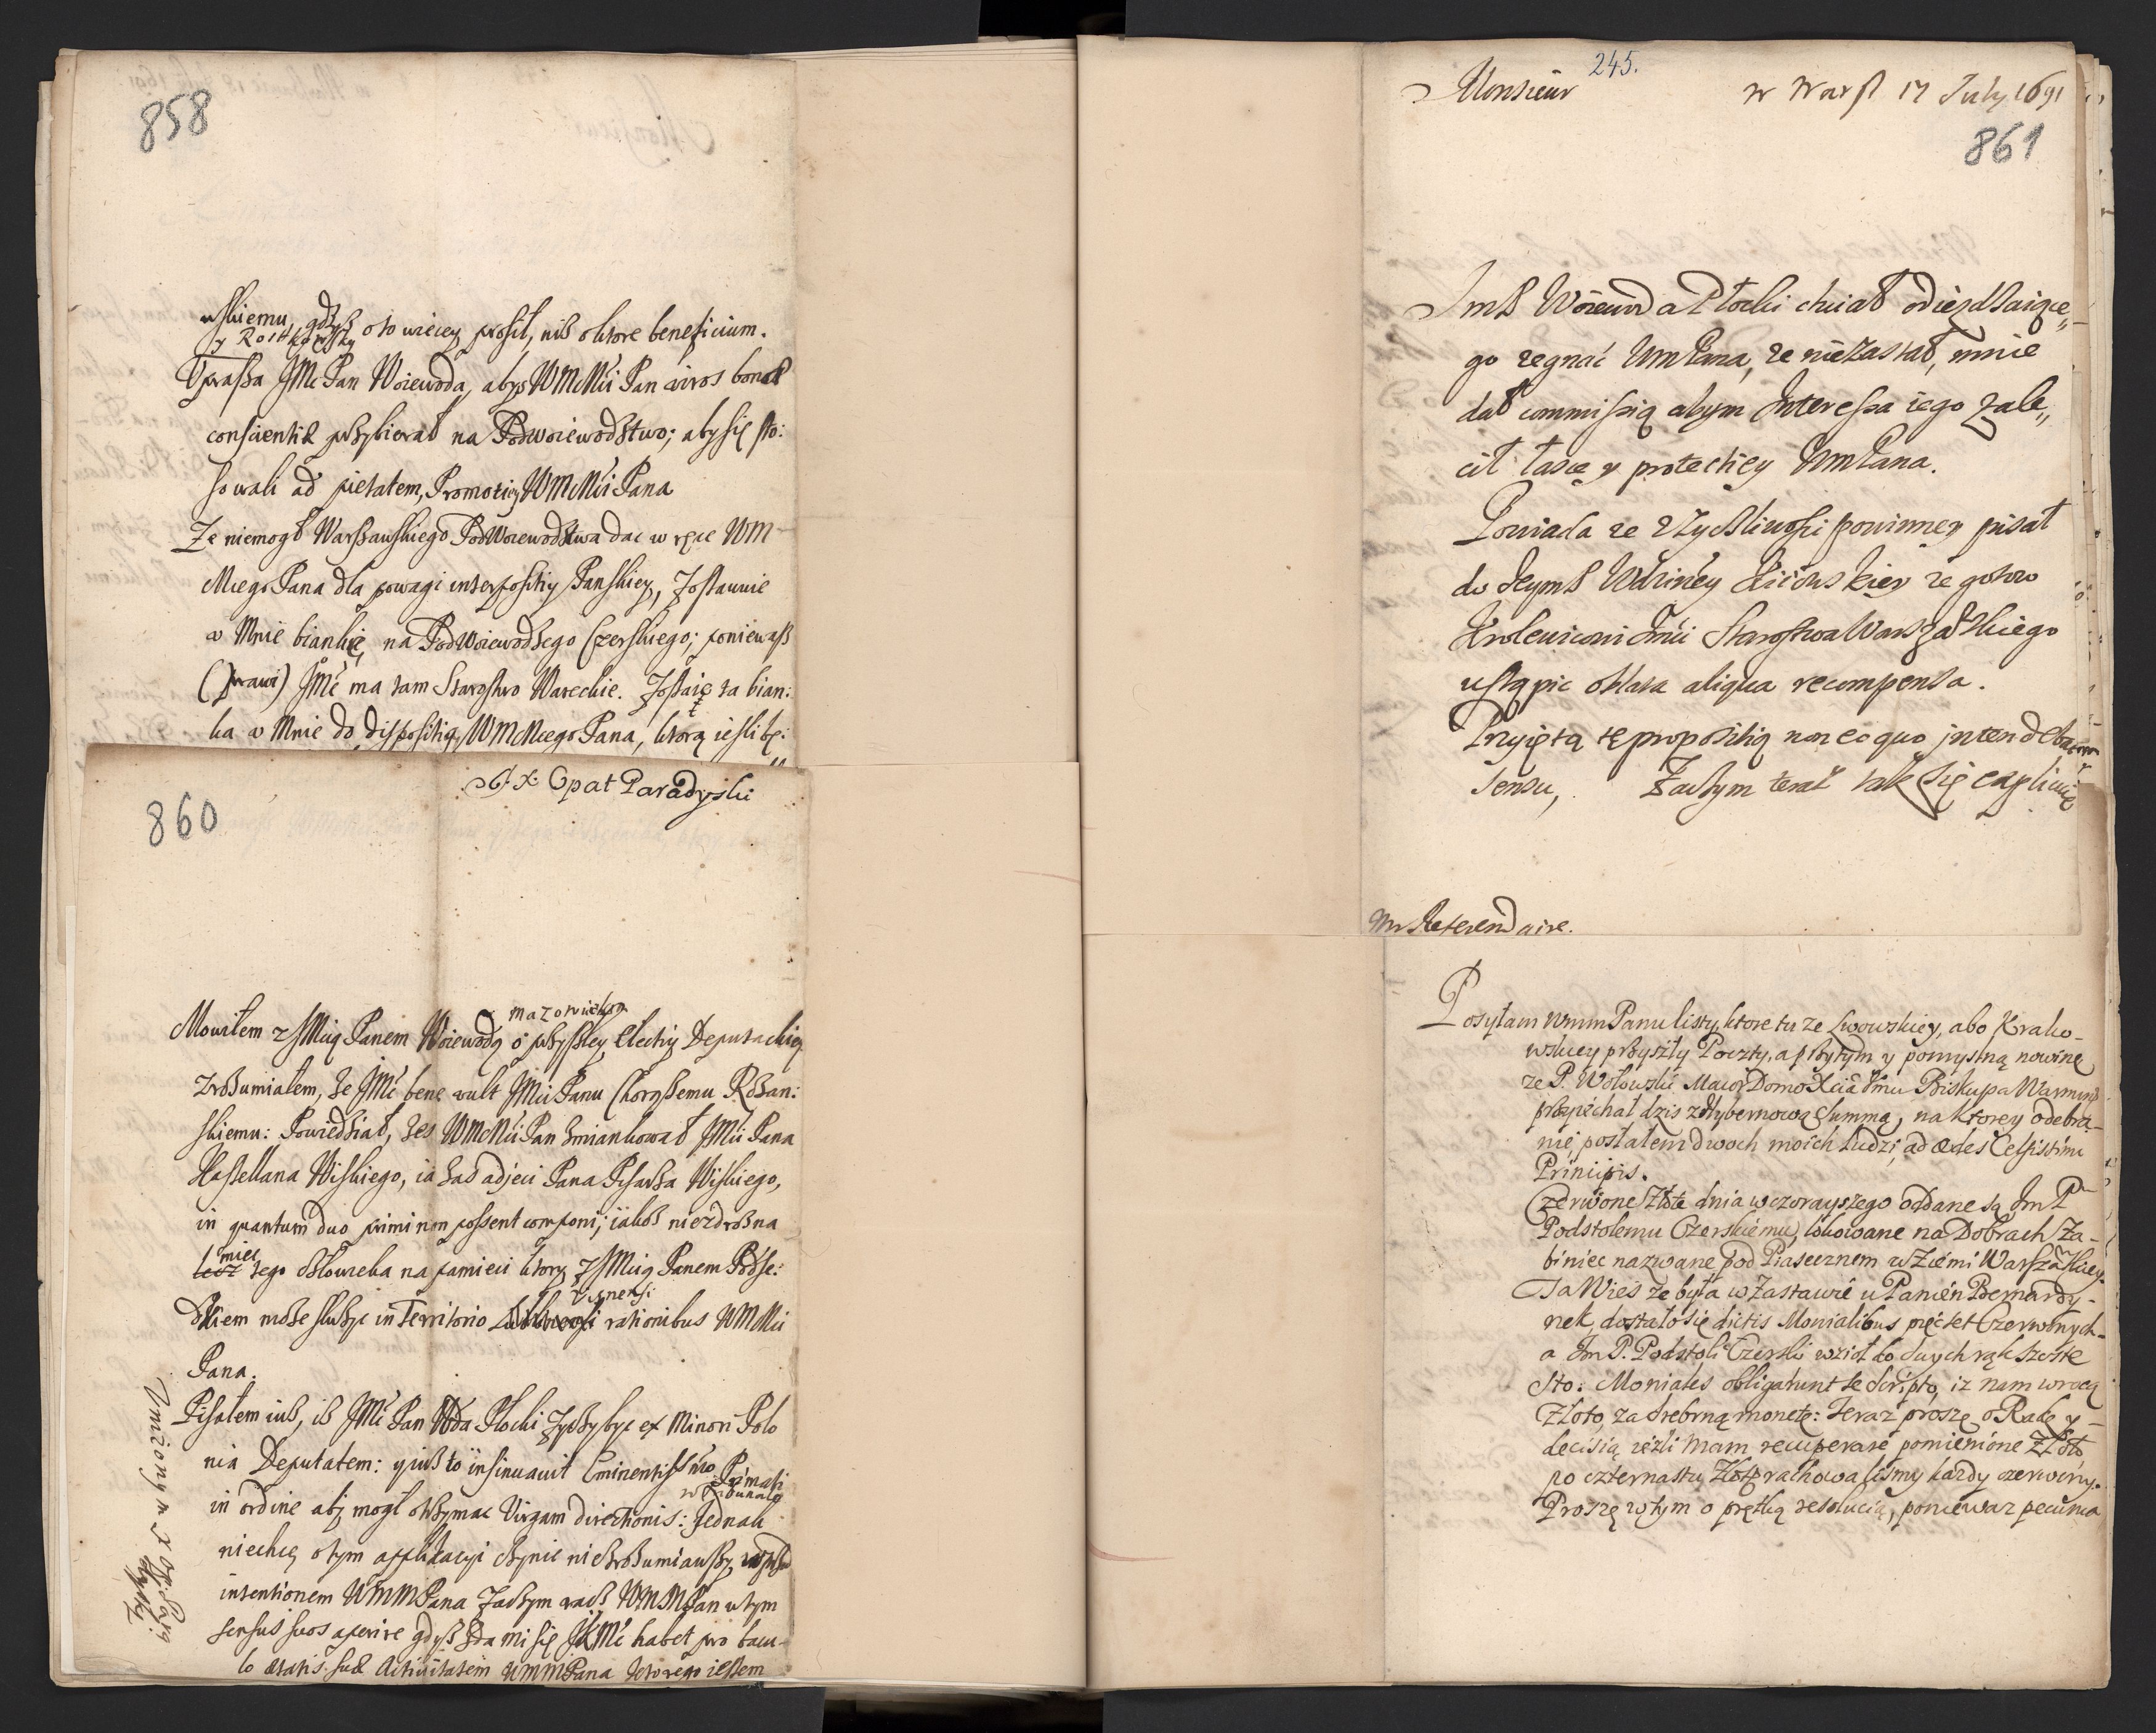 858
wskiemu, gdysz oto wiecey prosił, nisz o ktore beneficium.
y Rostkowsky
Uprasza JMc Pan Woiewoda, abys WMcMci Pan viros bonae
conscientiae przybierał na Podwoiewodztwo; aby się sto:
sowali ad pietatem, Promotiey WMcMci Pana
Ze niemogł Warszawskiego PodWoiewodztwa dac w ręce WM
Mcego Pana dla powagi interpositiy Panskiey, Zostawuie
w Mnie biankię na PodWoiewodzego Czerskiego; poniewasz
(prawi) JMc ma tam Starostwo Wareckie. Zostaie ta bian:
ka w Mnie do dispositiey WMMcego Pana, ktorą iesli bę:
860
X. Opat Paradyski
Mowiłem z JMcią Panem Woiewodą mazowieckim o przyszłey Electiy Deputackiey
zrozumiałem, że JMc bene vult JMci Panu Chorążemu Rożan:
skiemu: Powiedział, żes WMcMci Pan zmiankował JMci Pana
Kasztellana Wiskiego, ia zas adjeci Pana Pisarza Wiskiego,
in quantum duo primi non possent componi; iakosz niezdrożna
miec tego człowieka na pamieci ktory z JMcią Panem Podse:
dkiem może służyc in Territorio Visnensi rationibus WMMci
Pana.
Pisałem iusz, isz JMc Pan Wda Płocki życzy bydz ex Minori Polo
nia Deputatem: y iusz to insinuavit Eminentissimo Primati
in ordine aby mogł otrzymac Virgam directionis w Tribunale: Jednak
niechcę o tym applicacyi czynic nie zrozumiawszy wprzod
intentionem WMMPana Zaczym racz WMMPan w tym
sensus suos aperire gdysz zda mi się JKMc habet pro bacu-
lo aetatis suae Activitatem WMMPana ktorego iestem
Uniżonym
245.
Monsieur w Warsz 17 July 1691
861
Jmć Woiewoda Płocki chciał odiezdzaiące„
go zegnać WmPana, ze niezastał, mnie
dał commissią abym Interessa iego zale„
cił łasce y protectiey WmPana.
Powiada ze z zyczliwosci powinney pisał
do Jeymć Wdziney Kiiowskiey ze gotow
Krolewicowi Jmci Starostwa Warszawskiego
ustąpic oblata aliqua recompensa.
Przyiętą tę propositią non eo quo intendebatur
sensu, Zaczym teraz tak się explicuie
Mr Referendaire.
Posyłam WmmPanu listy, ktore tu ze Lwowskiey, abo Krako-
wskiey przyszły Poczty, a przytym y pomyslną nowinę
ze P. Wołowski Maior Domo Xcia Jmci Biskupa Warmins
przyiechał dzis z Hybernową Summą, na ktorey odebra-
nie, posłałem dwoch moich ludzi, ad aedes Celsissimi
Principis.
Czerwone Złote dnia wczorayszego oddane są Jm P
Podstolemu Czerskiemu, lokowane na Dobrach Za-
biniec nazwane, pod Piasecznem w Ziemi Warszawskiey.
Ta Wies ze była w Zastawie u Panien Bernardy-
nek, dostało się dictis Monialibus pięcset Czerwonych-
a Jm P. Podstoli Czerski wziął do swych rąk szoste
sto: Moniales obligarunt se scripto, iz nam wrocą
Złoto, za srebrną monetę: Teraz proszę o Radę y-
decisią iezli mam recuperare pomienione Złoto
po czternastu Złot rachowalismy kazdy czerwony.
Proszę w tym o prętką resolucią, poniewaz pecunia